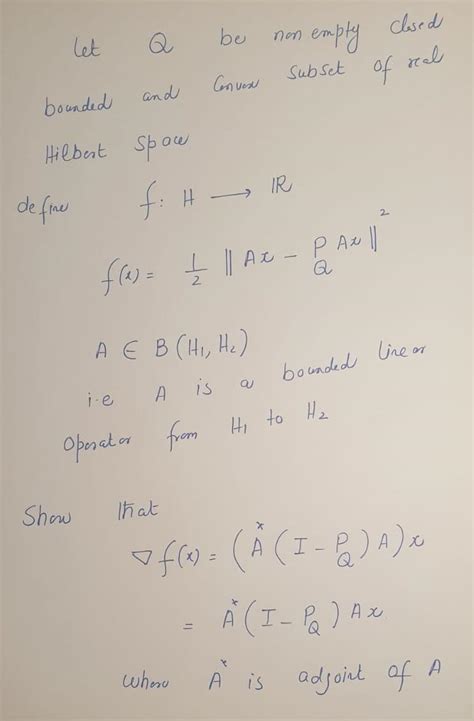 let Q be non empty closed
bounded and Convex subset of real
Hilbert space
define f: H ⟶ IR
f(x) = 1/2 ‖ Ax − P_Q Ax ‖²
A ∈ B (H₁, H₂)
i.e A is a bounded linear
operator from H₁ to H₂
Show that
∇f(x) = (A* (I − P_Q) A) x
= A* (I − P_Q) Ax
where A* is adjoint of A